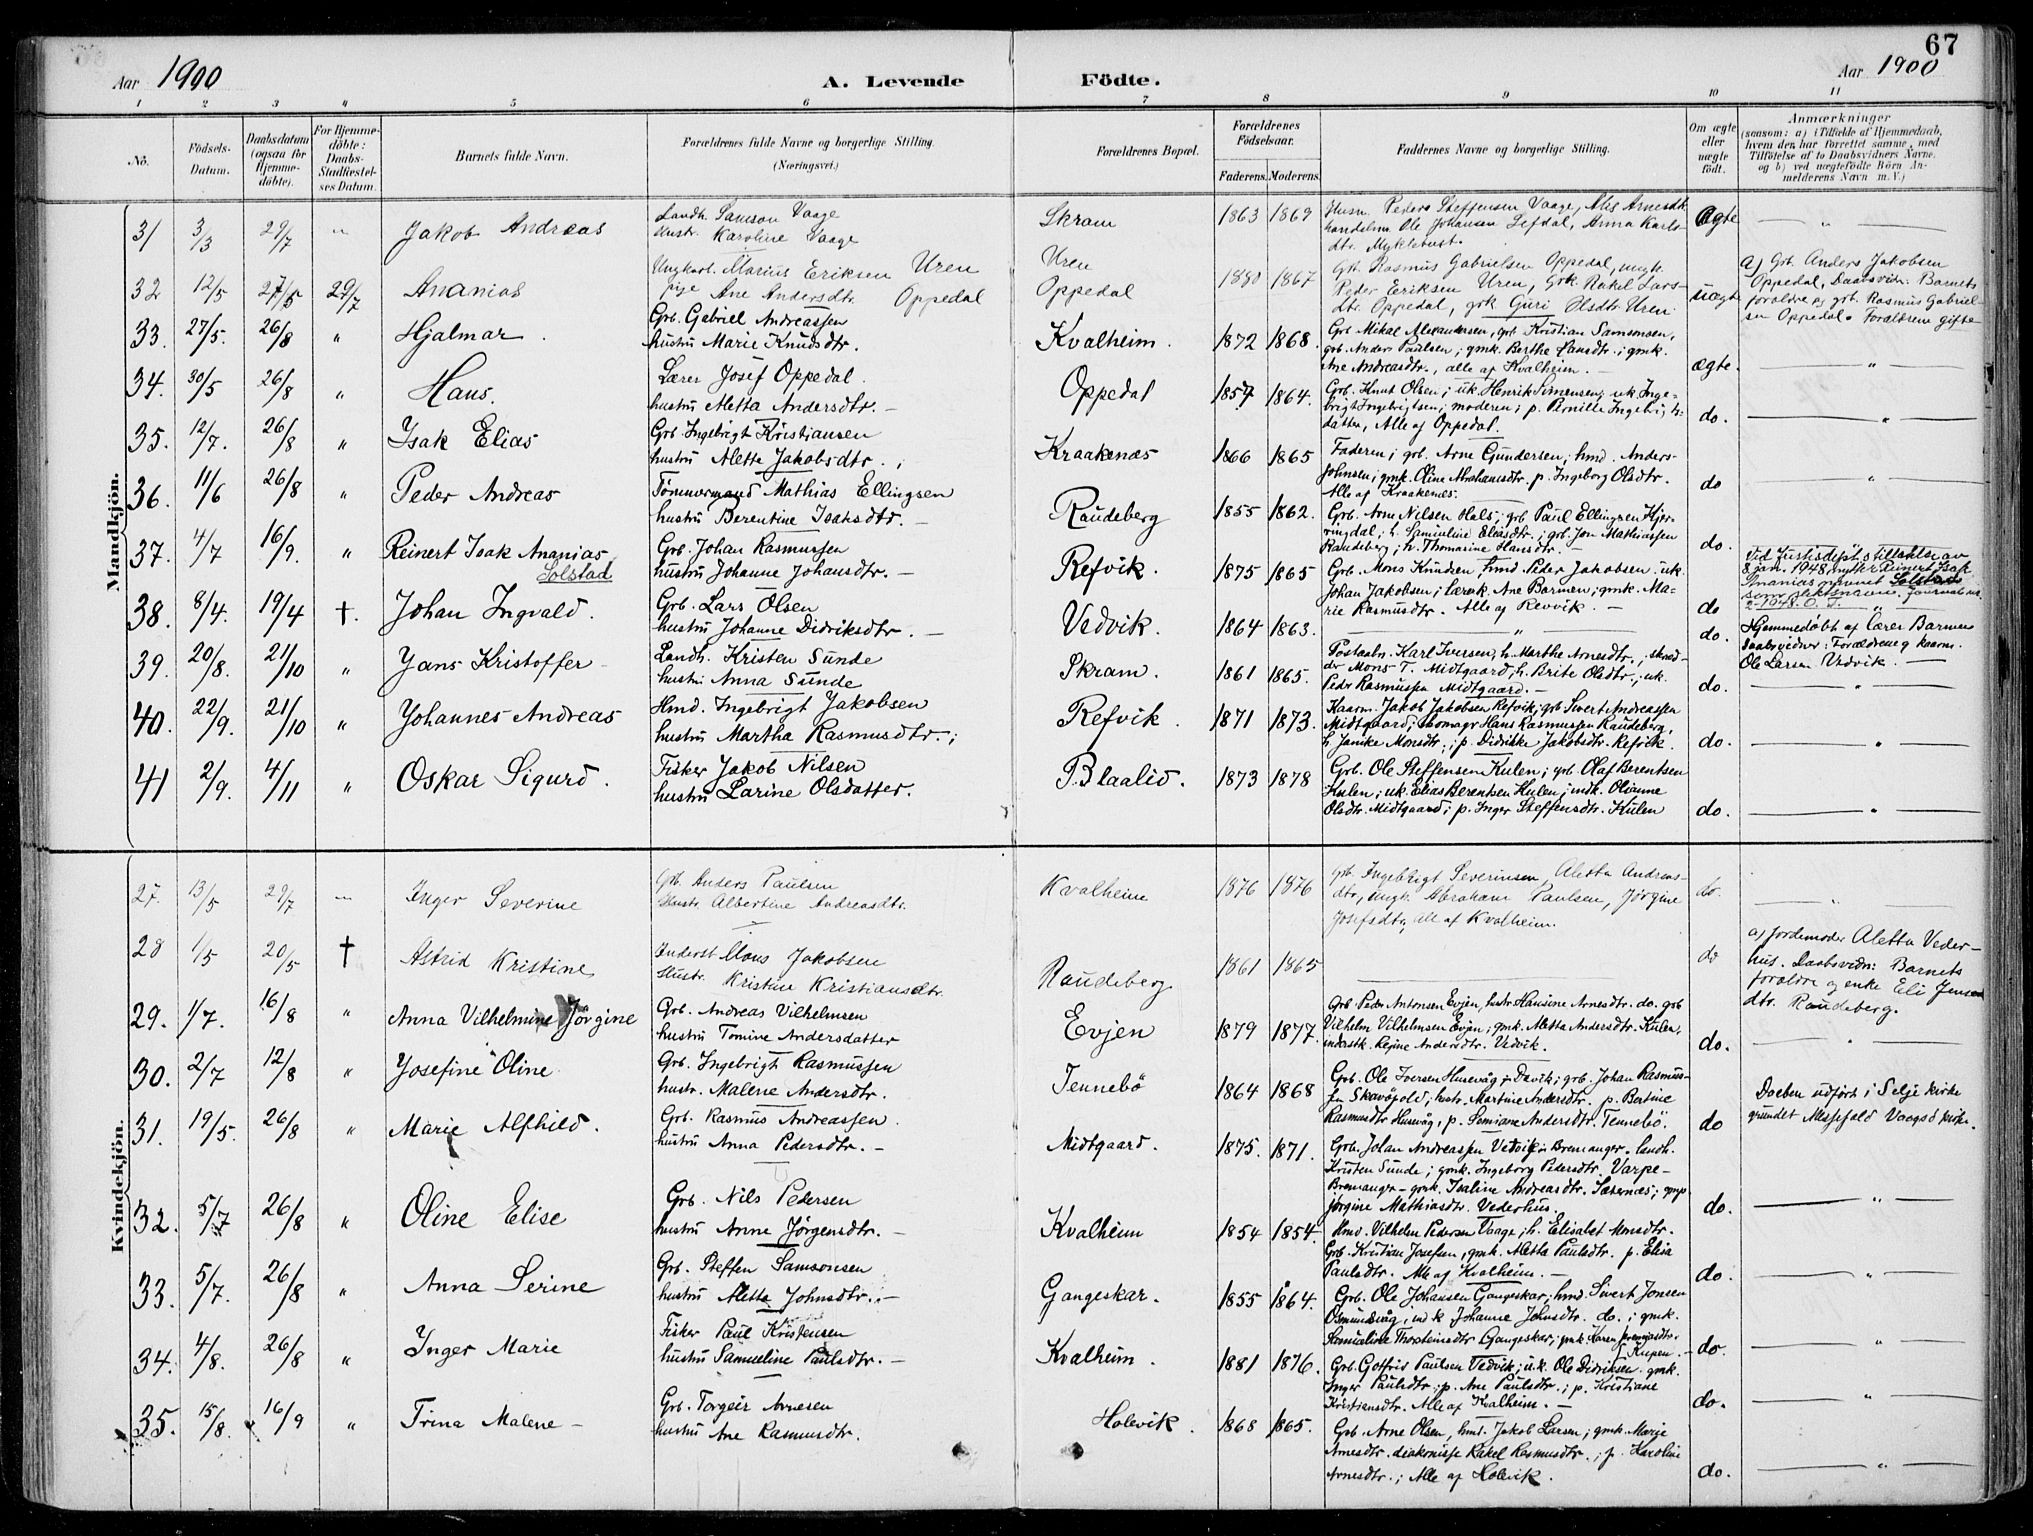 67
Aar 1900
A. Levende Födte.
Aar 1900
1 2 3 4 5 6 7 8 9 10 11
No.
Födsels-Datum.
Daabsdatum (ogsaa for Hjemmedöbte).
For Hjemmedöbte: Daabs-Stadfæstelses Datum.
Barnets fulde Navn.
Forældrenes fulde Navne og borgerlige Stilling.
(Næringsvei.)
Forældrenes Bopæl.
Forældrenes Födselsaar.
Faderens. Moderens.
Faddernes Navne og borgerlige Stilling.
Om ægte eller uægte födt.
Anmærkninger
(saasom: a) i Tilfælde af Hjemmedaab, hvem der har forrettet samme, med Tilföielse af to Daabsvidners Navne, og b) ved uægtefödte Börn Anmelderens Navn m. V.)
Mandkjön.
31 3/3 29/7 " Jakob Andreas
Landh. Samson Vaage
Hustr. Karoline Vaage
Skram 1863 1869
Husm. Peder Steffensen Vaage, Arnesdtr.
handelsm. Ole Johansen Lefdal, Anna Karls-
dtr. Myklebust.
ægte
32 12/5 27/5 29/7 Ananias
Ungkarl. Marius Eriksen Uren
pige Ane Andersdtr. Oppedal
Uren
Oppedal
1880 1867
Grb. Rasmus Gabrielsen Oppedal, ungk.
Peder Eriksen Uren, Grk. Rakel Lars-
dtr. Oppedal, grk Guri Olsdtr. Uren.
uægte
a) Grb. Anders Jakobsen
Oppedal, Daabsvidn: Barnets
forældre og grb. Rasmus Gabriel-
sen Oppedal. Forældrene gifte
33. 27/5. 26/8 " Hjalmar.
Grb. Gabriel Andreassen
hustru Marie Knudsdtr.
Kvalheim. 1872 1868.
Grb. Mikal Alexandersen, grb. Kristian Samsonsen,
grb. Anders Paulsen; gmk. Berthe Hansdtr.; gmk.
Ane Andreasdtr., alle af Kvalheim. —
ægte. "
34. 30/5 26/8 " Hans.
Lærer Josef Oppedal.
hustru Aletta Andersdtr. —
Oppedal 1857 1864.
Grb. Knut Olsen; uk. Henrik Simensen; uk. Inge-
brigt Ingebrigtsen; moderen; p. Pernille Ingebrigts-
datter, Alle af Oppedal.
do. "
35. 12/7. 26/8 " Isak Elias
Grb. Ingebrigt Kristiansen
hustru Alette Jakobsdtr.;
Kraakenæs 1866 1865
Faderen; grb. Arne Gundersen; hmd. Anders
Johnsen; gmk. Oline Abrahamsdtr. p. Ingeborg Olsdtr.
Alle af Kraakenæs.
do "
36. 11/6 26/8 " Peder Andreas
Tömmermand Mathias Ellingsen
hustru Berentine Isaksdtr. —
Raudeberg 1855 1862.
Grb. Arne Nilsen Hals; grb. Paul Ellingsen Hjer-
ringdal; h. Samueline Eliasdtr.; grb. Jon Mathiassen
Raudeberg; h. Thomasine Hansdtr. —
do.
37. 4/7 16/9. " Reinert Isak Ananias
Solstad
Grb. Johan Rasmussen
hustru Johanne Johansdtr. —
Refvik. 1875 1865
Grb. Mons Knudsen, hmd. Peder Jakobsen uk.
Johan Jakobsen; lærerk. Ane Barmen; gmk. Ma-
rie Rasmusdtr. Alle af Revvik. —
do
Ved Justisdept.s tillatelse av
8 jan. 1948, nytter Reinert Isak
Ananias navnet Solstad
som slektsnavn. Journal nr.
2-1948. O. J.
38. 8/4. 19/4 †. Johan Ingvald.
Grb. Lars Olsen
hustru Johanne Didriksdtr. —
Vedvik. 1864 1863. "
do.
Hjemmedöbt af Lærer Barmen
Daabsvidner: Forældrene og kaarm.
Ole Larsen Vedvik. —
39. 20/8. 21/10 " Jans Kristoffer
Landh. Kristen Sunde
hustru Anna Sunde
Skram. 1861 1865.
Postaabn. Karl Iversen, h. Marthe Arnesdtr.; skræd-
der Mons T. Midtgaard, h. Brite Olsdtr.; uk.
Peder Rasmussen Midtgaard. —
do. "
40. 22/9. 21/10 " Johannes Andreas
Hmd. Ingebrigt Jakobsen
hustru Martha Rasmusdtr.;
Refvik. 1871 1873.
Kaarm. Jakob Jakobsen Refvik; grb. Sivert Andreassen
Midtgaard; skomagr Hans Rasmussen Raudeberg,
h. Janike Monsdtr.; p. Didrikke Jakobsdtr. Refvik.
do. "
41 2/9. 4/11 " Oskar Sigurd.
Fisker Jakob Nilsen
hustru Larine Olsdatter.
Blaalid. 1873 1878
Grb. Ole Steffensen Kulen; grb. Olaf Berentsen
Kulen; uk. Elias Berentsen Kulen; indk. Olianne
Olsdtr. Midtgaard; p. Inger Steffensdtr. Kulen
do. "
Kvindekjön.
27. 13/5 29/7 " Inger Severine
Grb. Anders Paulsen
Hustr. Albertine Andreasdtr.
Kvalheim 1876 1876
Grb. Ingebrigt Severinsen, Aletta Andreas-
dtr, ungk. Abraham Paulsen, Jørgine
Josefsdtr, alle af Kvalheim.
do. "
28 1/5 20/5 † Astrid Kristine
Inderst Mons Jakobsen
Hustr. Kristine Kristiansdtr.
Raudeberg 1861 1865
do
a) Jordemoder Aletta Veder-
hus. Daabsvidn: Barnets
forældre og enke Eli Jensen
dtr. Raudeberg.
29. 1/7. 16/8 " Anna Vilhelmine Jörgine
Grb. Andreas Vilhelmsen
hustru Tomine Andersdatter
Evjen 1879 1877.
Grb. Peder Antonsen Evjen, hustr. Hansine Arnesdtr. do. grb.
Vilhelm Vilhelmsen Evjen; gmk. Aletta Andersdtr. Kulen,
inderstk. Regine Andersdtr. Vedvik.
do. "
30. 2/7 12/8 " Josefine Oline
Grb. Ingebrigt Rasmussen
hustr. Malene Andersdtr.
Tennebö 1864 1868
Grb. Ole Iversen Husevåg p. Davik; grb. Johan Rasmus-
sen Skavöpold; hustr. Martine Andersdtr. p. Bertine
Rasmusdtr. Husevåg, p. Semiane Andersdtr. Tennebö.
do
Daaben udført i Selje kirke
grundet Messefald Vaagsö kirke.
31. 19/5. 26/8 " Marie Alfhild.
Grb. Rasmus Andreassen.
hustru Anna Pedersdtr. —
Midtgaard. 1875. 1871.
Grb. Johan Andreassen Vetvik Bremanger, landh.
Kristen Sunde; gmk. Ingeborg Pedersdtr. Varpe-
Bremanger — gmk. Isaline Andreasdtr. Sæternæs; gmp.
Jörgine Mathiasdtr. Vederhus.
do. "
32. 5/7 26/8 " Oline Elise
Grb. Nils Pedersen
hustru Anne Jörgensdtr. —
Kvalheim 1854 1854.
Hmd. Vilhelm Pedersen Vaage; h. Elisabet Monsdtr.
Grb. Kristian Josefsen, gmk. Aletta Paulsdtr. p. Elisa
Paulsdtr. Alle af Kvalheim. —
do. "
33. 5/7. 26/8 " Anna Serine
Grb. Steffen Samsonsen
hustru Aletta Johnsdtr. —
Gangeskar. 1855 1864.
Grb. Ole Johansen Gangeskar; hmd. Sivert Jonsen
Osmundsvåg, ind k Johanne Johnsdtr. do.; gmk.
Samueline Thorsteinsdtr. Gangeskar; gmk. Karen
Rupen. —
do. "
34. 4/8. 26/8 " Inger Marie
Fisker Paul Kristensen
hustru Samueline Paulsdtr. —
Kvalheim. 1881 1876.
Grb. Gotfrid Paulsen Vedvik; u.k. Ole Didriksen. gmk.
Inger Paulsdtr.; p. Ane Paulsdtr.; p. Kristiane
Kristiansdtr. Alle af Kvalheim. —
do. "
35. 15/8. 16/9 " Trina Malene —
Grb. Torgeir Arnesen
hustru Ane Rasmusdtr.
Holevik. 1868 1865.
Grb. Arne Olsen, hmd. Jakob Larsen; gmk. Marie
Arnesdtr. diakonisse Rakel Rasmusdtr.; p. Karoline
Arnesdtr.; Alle af Holevik.
do. "